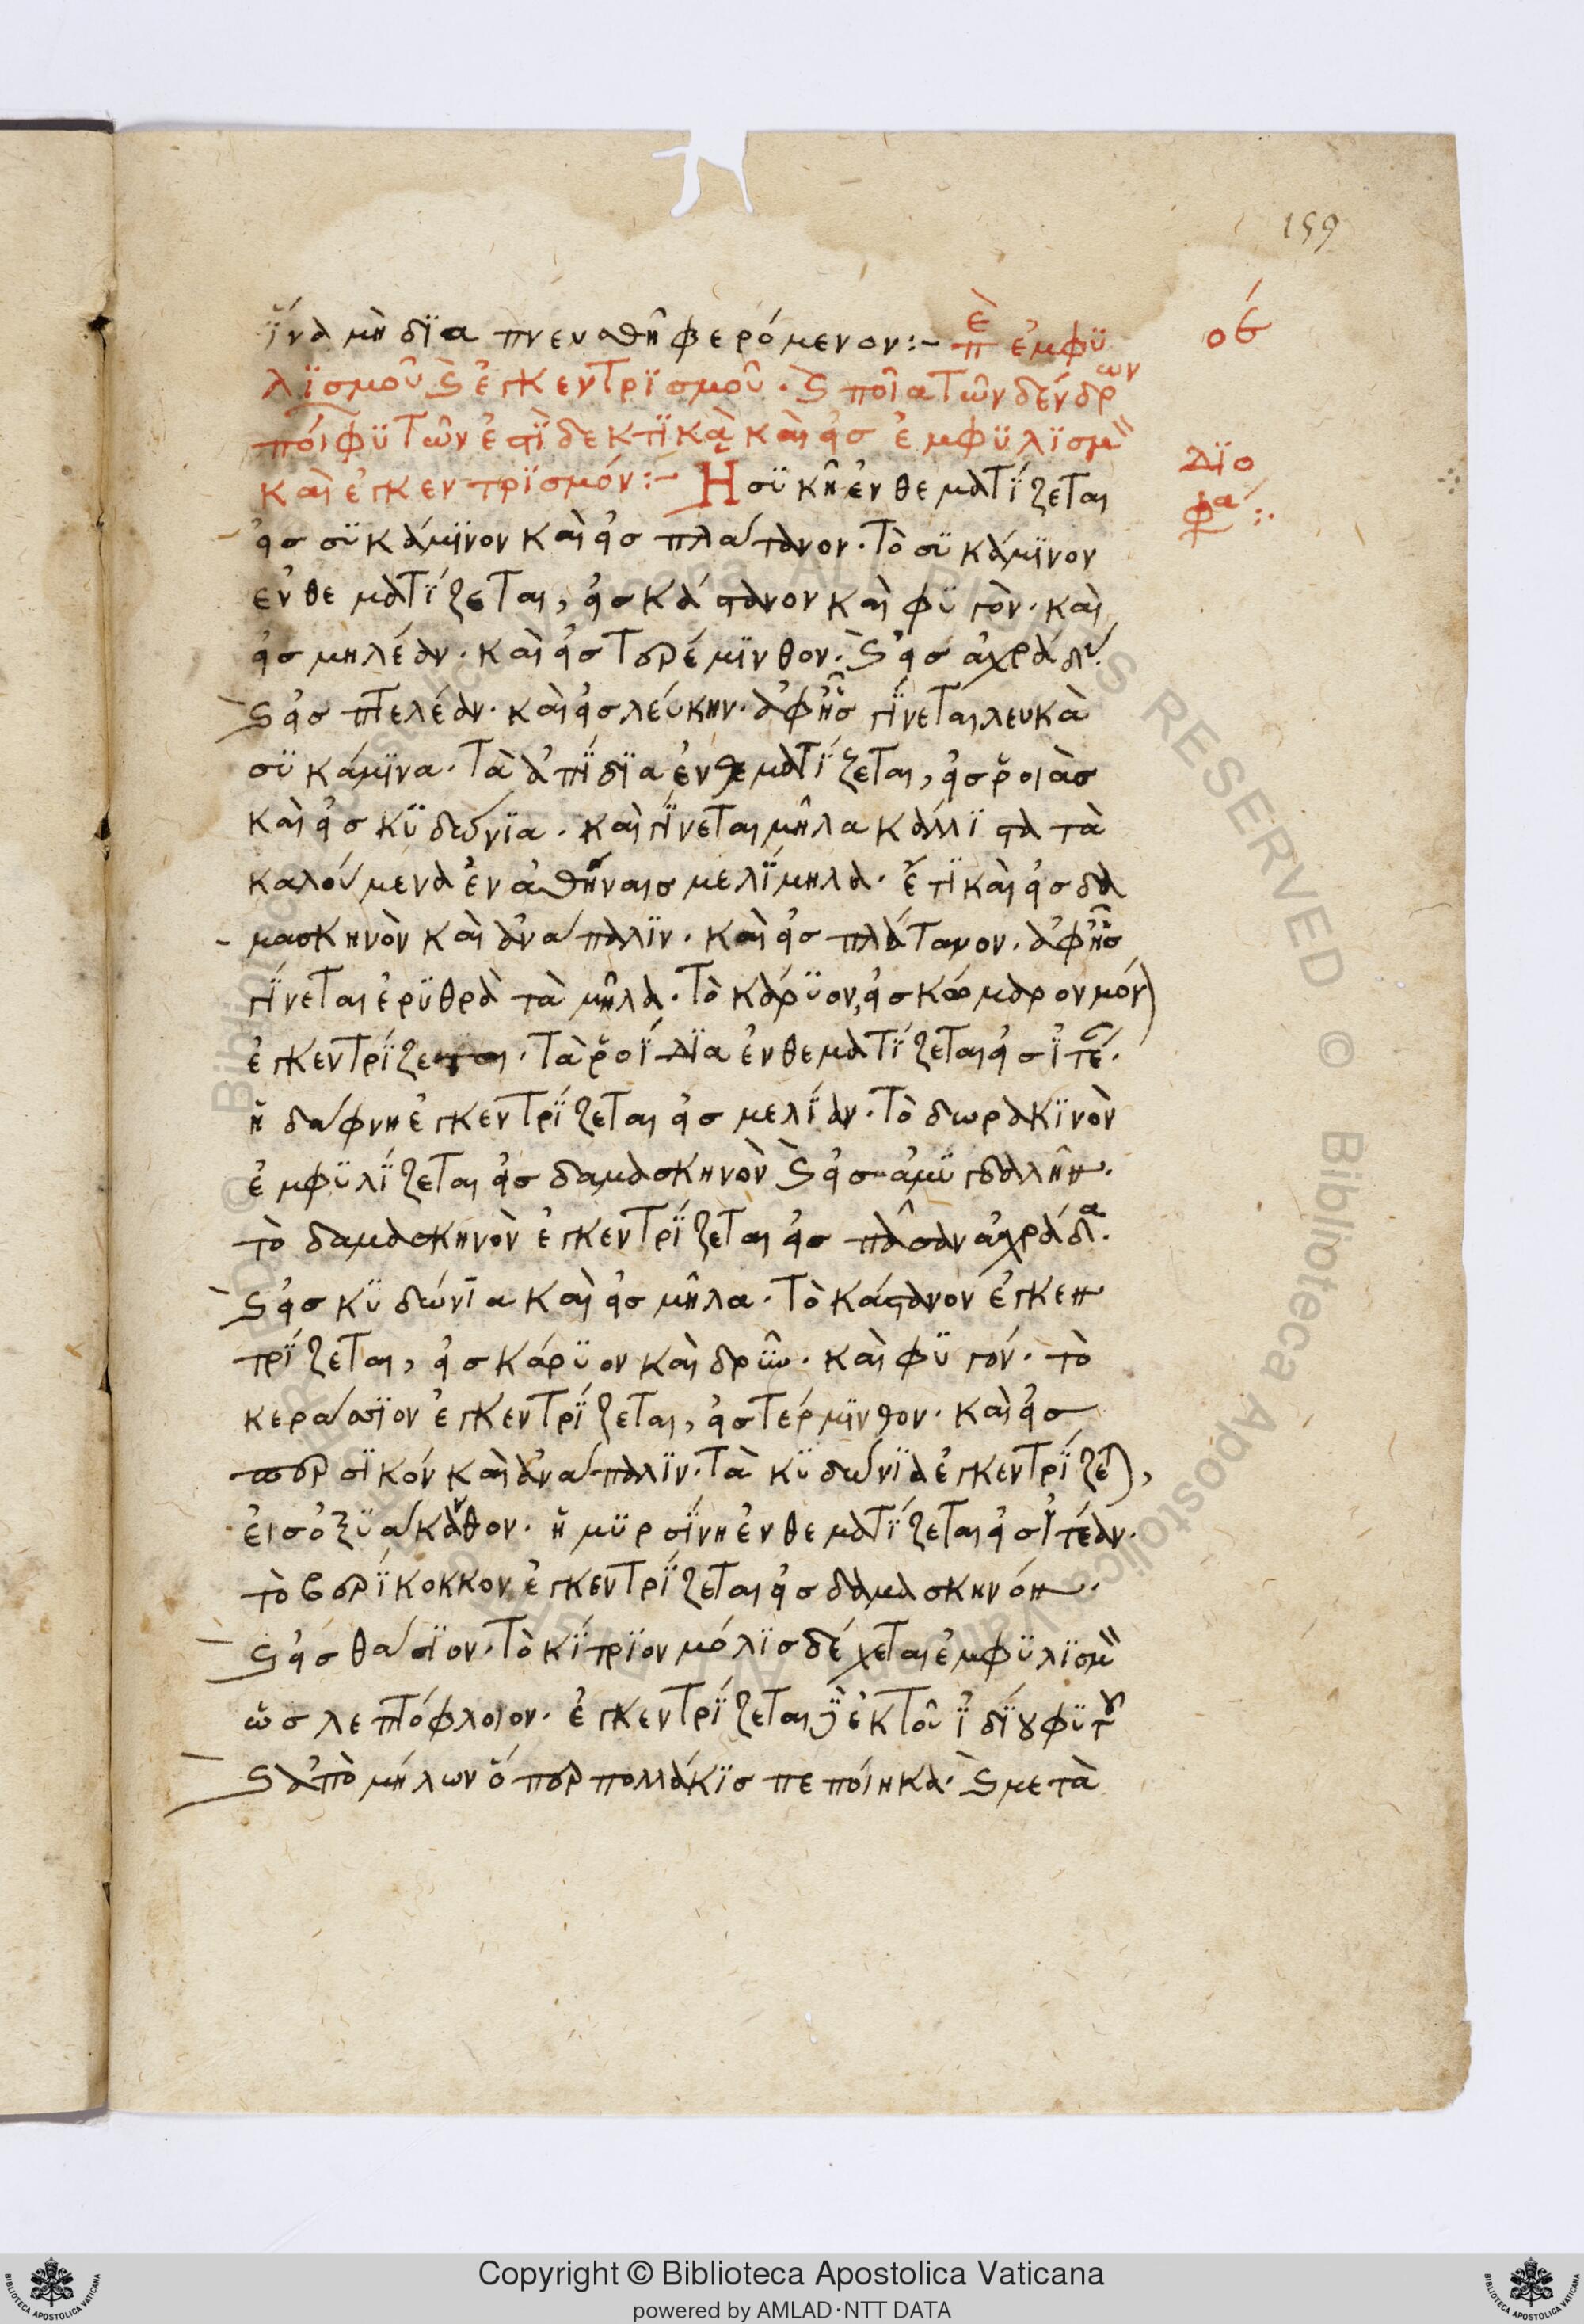 159
ἵνα μὴ διαπνευσθῆ φερόμενον:- πε ἐμφυ
οϛ́
λισμοῦ καὶ ἐγκεντρισμοῦ· καὶ ποῖα τῶν δένδρων
ποί φυτῶν ἐστὶ δεκτικὰ καὶ εἰς ἐμφυλισμ
καὶ ἐγκεντρισμόν:- Ἡ συκῆ ἐνθεματίζεται
Διο
φα:·
εἰς συκάμινον καὶ εἰς πλάτανον· Τὸ συκάμινον
ἐνθεματίζεται, εἰς κάστανον καὶ φυγόν· καὶ
εἰς μηλέαν· καὶ εἰς τερέμινθον· καὶ εἰς ἀχράδα·
καὶ εἰς πτελέαν· καὶ εἰς λεύκην· ἀφῆς γίνεται λευκὰ
συκάμινα· Τὰ ἀπίδια ἐνθεματίζεται, εἰς ῥοιὰς
καὶ εἰς κυδώνια· καὶ γίνεται μῆλα κάλλιστα τὰ
καλούμενα ἐν ἀθήναις μελίμηλα· ἔτι καὶ εἰς δα
μασκηνὸν καὶ ἀνάπαλιν· καὶ εἰς πλάτανον· ἀφῆς
γίνεται ἐρυθρὰ τὰ μῆλα· Τὸ κάρυον, εἰς κόμαρον μόν
ἐγκεντρίζεται· Τὰ ῥοίδια ἐνθεματίζεται εἰς ἰτέ·
ἡ δάφνη ἐγκεντρίζεται εἰς μελίαν· Τὸ δωρακινὸν
ἐμφυλίζεται εἰς δαμασκηνὸν καὶ εἰς ἀμυγδαλῆν·
τὸ δαμασκηνὸν ἐγκεντρίζεται εἰς πᾶσαν ἀχράδα·
καὶ εἰς κυδώνια καὶ εἰς μῆλα· Τὸ κάστανον ἐγκεν
τρίζεται, εἰς κάρυον καὶ δρῦν· καὶ φυγόν· τὸ
κεράσιον ἐγκεντρίζεται, εἰς τέρμινθον· καὶ εἰς
περσικόν καὶ ἀνάπαλιν· Τὰ κυδώνια ἐγκεντρίζεται,
εἰς ὀξυάκανθον· ἡ μυρσίνη ἐνθεματίζεται εἰς ἰτέαν·
τὸ βερίκοκκον ἐγκεντρίζεται εἰς δαμασκηνόν·
καὶ εἰς θάσιον· Τὸ κίτριον μόλις δέχεται ἐμφυλισμ
ὡς λεπτόφλοιον· ἐγκεντρίζεται ἐκ τοῦ ἰδίου φυτοῦ
καὶ ἀπὸ μήλων ὅπερ πολλάκις πεποίηκα· καὶ μετὰ
Copyright © Biblioteca Apostolica Vaticana
powered by AMLAD·NTT DATA